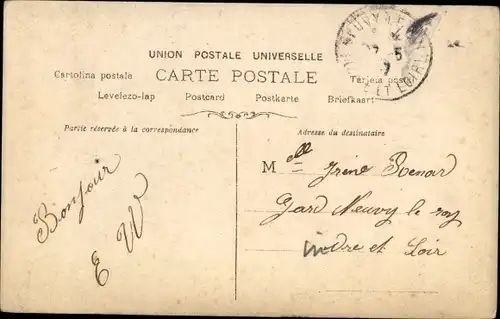 UNION POSTALE UNIVERSELLE
CARTE POSTALE
Cartolina postale
Tarjeta postal
Levelezo-lap Postcard Postkarte Briefkaart
Partie réservée à la correspondance
Adresse du destinataire
Bonjour
E W
Melle Irène Benard
Gard Neuvy le roy
indre et Loir
ET LOIRE